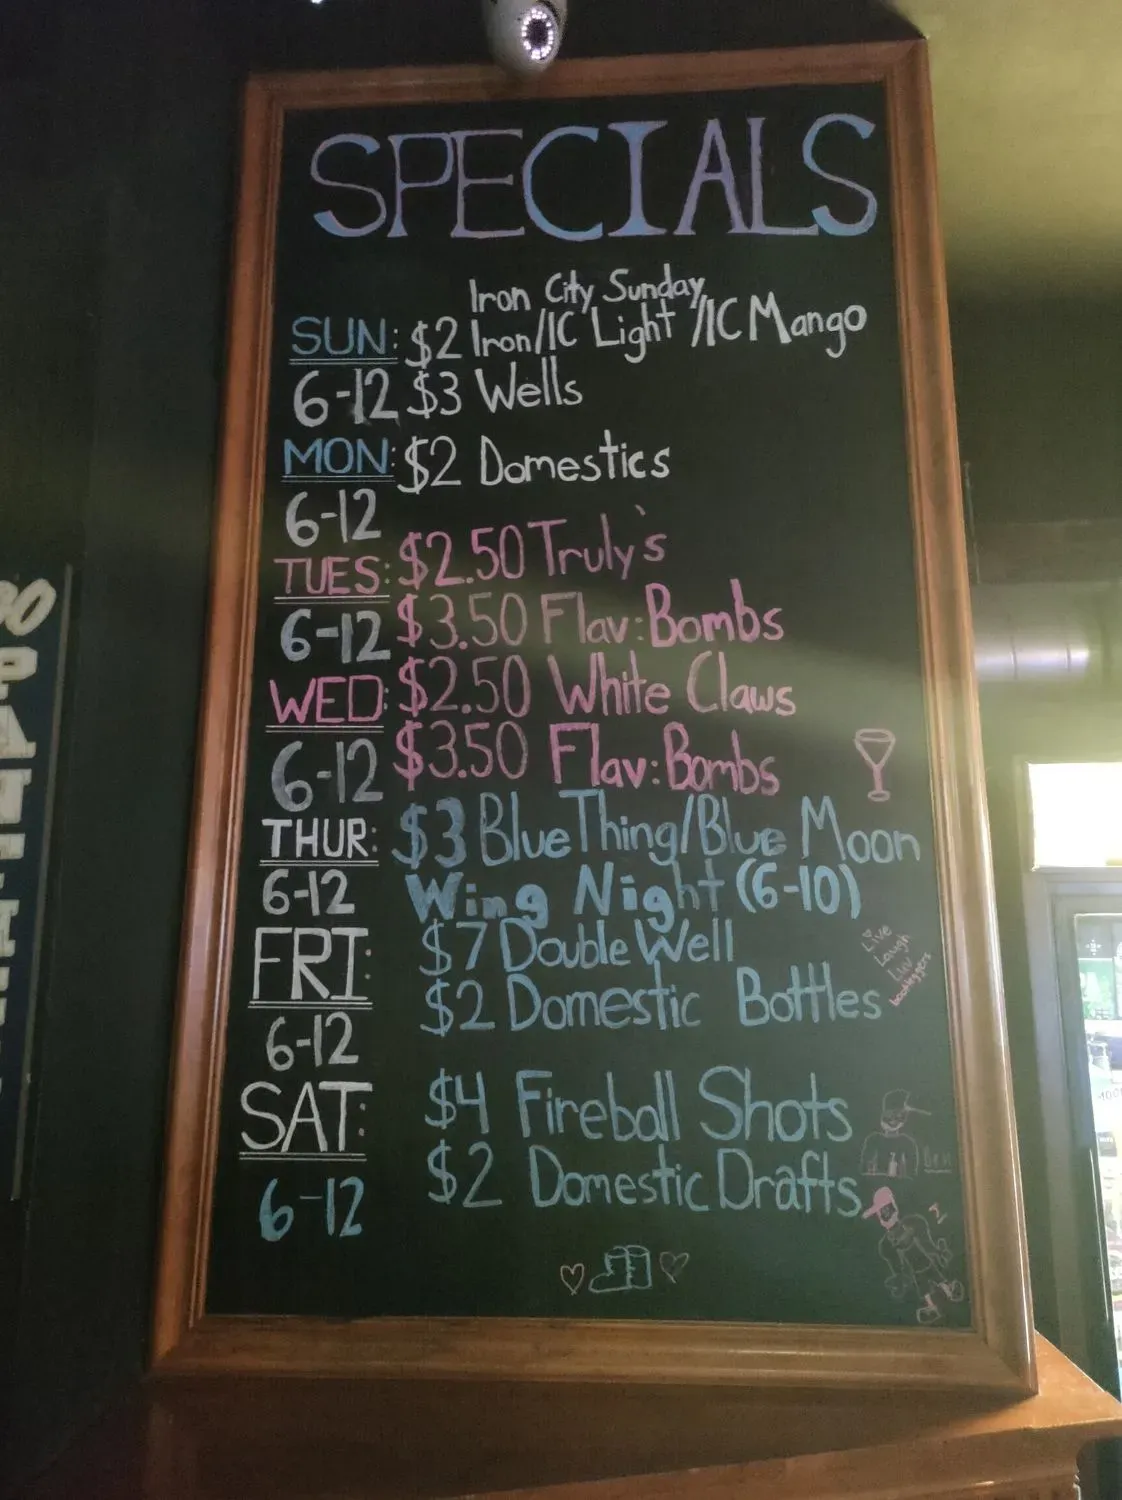 SPECIALS
Iron City Sunday
SUN: $2 Iron/IC Light /IC Mango
6-12 $3 Wells
MON: $2 Domestics
6-12
TUES: $2.50 Truly's
6-12 $3.50 Flav: Bombs
WED: $2.50 White Claws
6-12 $3.50 Flav: Bombs
THUR: $3 Blue Thing/Blue Moon
6-12 Wing Night (6-10)
FRI: $7 Double Well
$2 Domestic Bottles
6-12
Live
Laugh
Luv
bootleggers
SAT: $4 Fireball Shots
6-12 $2 Domestic Drafts